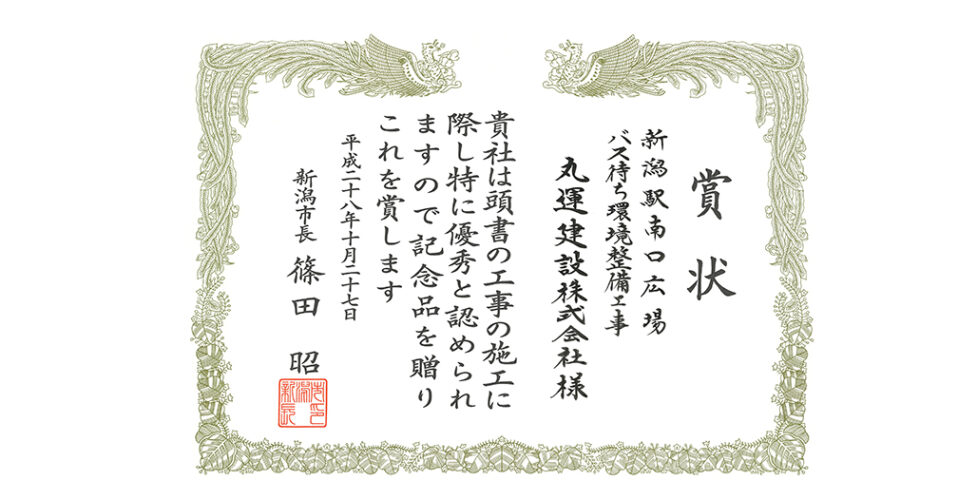 賞状
新潟駅南口広場
バス待ち環境整備工事
丸運建設株式会社様
貴社は頭書の工事の施工に
際し特に優秀と認められ
ますので記念品を贈り
これを賞します
平成二十八年十月二十七日
新潟市長 篠田 昭
新潟市長之印